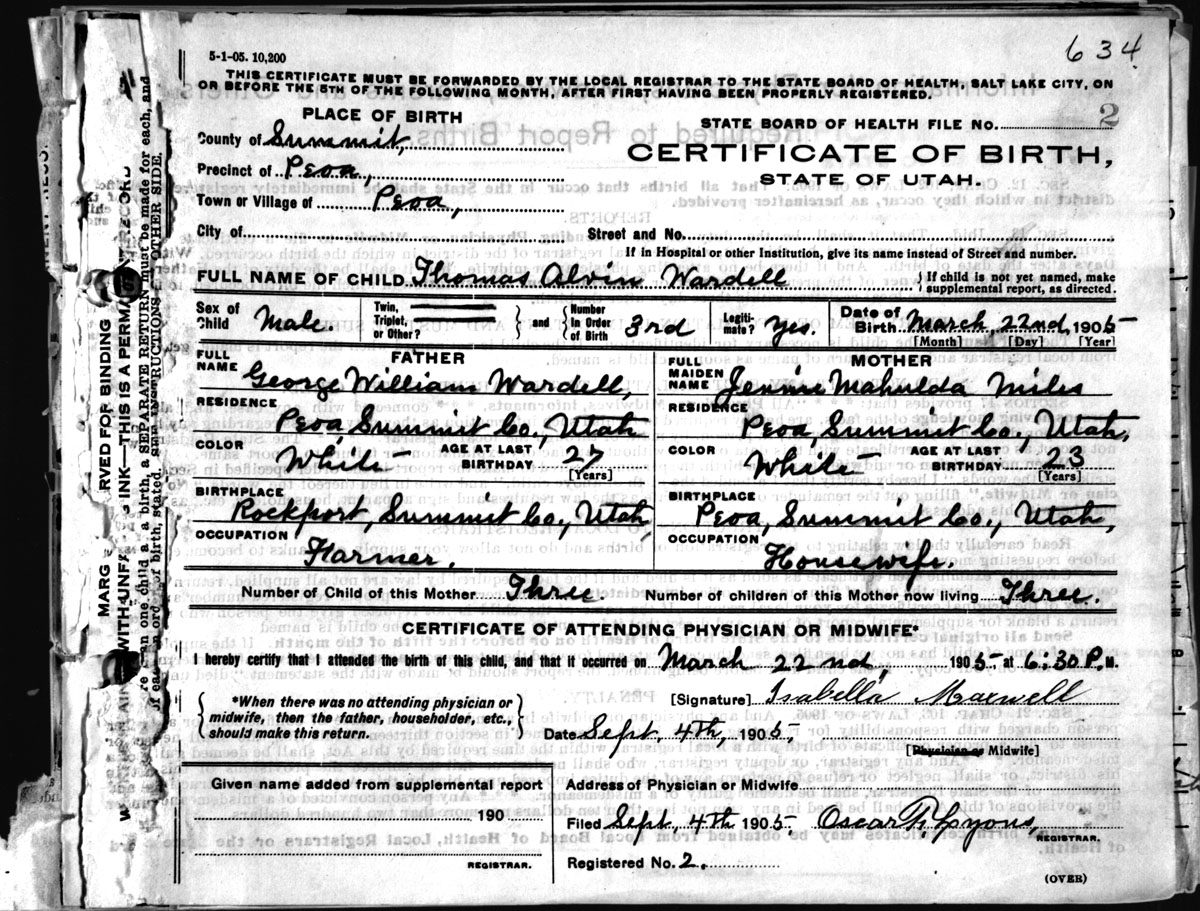 634
5-1-05. 10,200
THIS CERTIFICATE MUST BE FORWARDED BY THE LOCAL REGISTRAR TO THE STATE BOARD OF HEALTH, SALT LAKE CITY, ON
OR BEFORE THE 5TH OF THE FOLLOWING MONTH, AFTER FIRST HAVING BEEN PROPERLY REGISTERED.
PLACE OF BIRTH
STATE BOARD OF HEALTH FILE No. 2
County of Summit,
CERTIFICATE OF BIRTH,
Precinct of Peoa,
STATE OF UTAH.
Town or Village of Peoa,
City of Street and No.
If in Hospital or other Institution, give its name instead of Street and number.
FULL NAME OF CHILD Thomas Alvin Wardell } If child is not yet named, make supplemental report, as directed.
Sex of Child Male. Twin, Triplet, or Other? } and { Number in Order of Birth 3rd Legiti-mate? Yes. Date of Birth March, 22nd, 1905
[Month] [Day] [Year]
FATHER MOTHER
FULL NAME George William Wardell, FULL MAIDEN NAME Jennie Mahulda Miles
RESIDENCE Peoa, Summit Co., Utah RESIDENCE Peoa, Summit Co., Utah,
COLOR White AGE AT LAST BIRTHDAY 27 [Years] COLOR White AGE AT LAST BIRTHDAY 23 [Years]
BIRTHPLACE Rockport, Summit Co., Utah BIRTHPLACE Peoa, Summit Co., Utah,
OCCUPATION Farmer. OCCUPATION Housewife.
Number of Child of this Mother Three. Number of children of this Mother now living Three.
CERTIFICATE OF ATTENDING PHYSICIAN OR MIDWIFE.*
I hereby certify that I attended the birth of this child, and that it occurred on March 22nd, 1905 at 6:30 P. M.
{ *When there was no attending physician or
midwife, then the father, householder, etc.,
should make this return. }
[Signature] Isabella Maxwell
Date Sept. 4th, 1905,
[Physician or Midwife]
Given name added from supplemental report
190
REGISTRAR.
Address of Physician or Midwife
Filed Sept, 4th 1905. Oscar F. Lyons, REGISTRAR.
Registered No. 2.
(OVER)